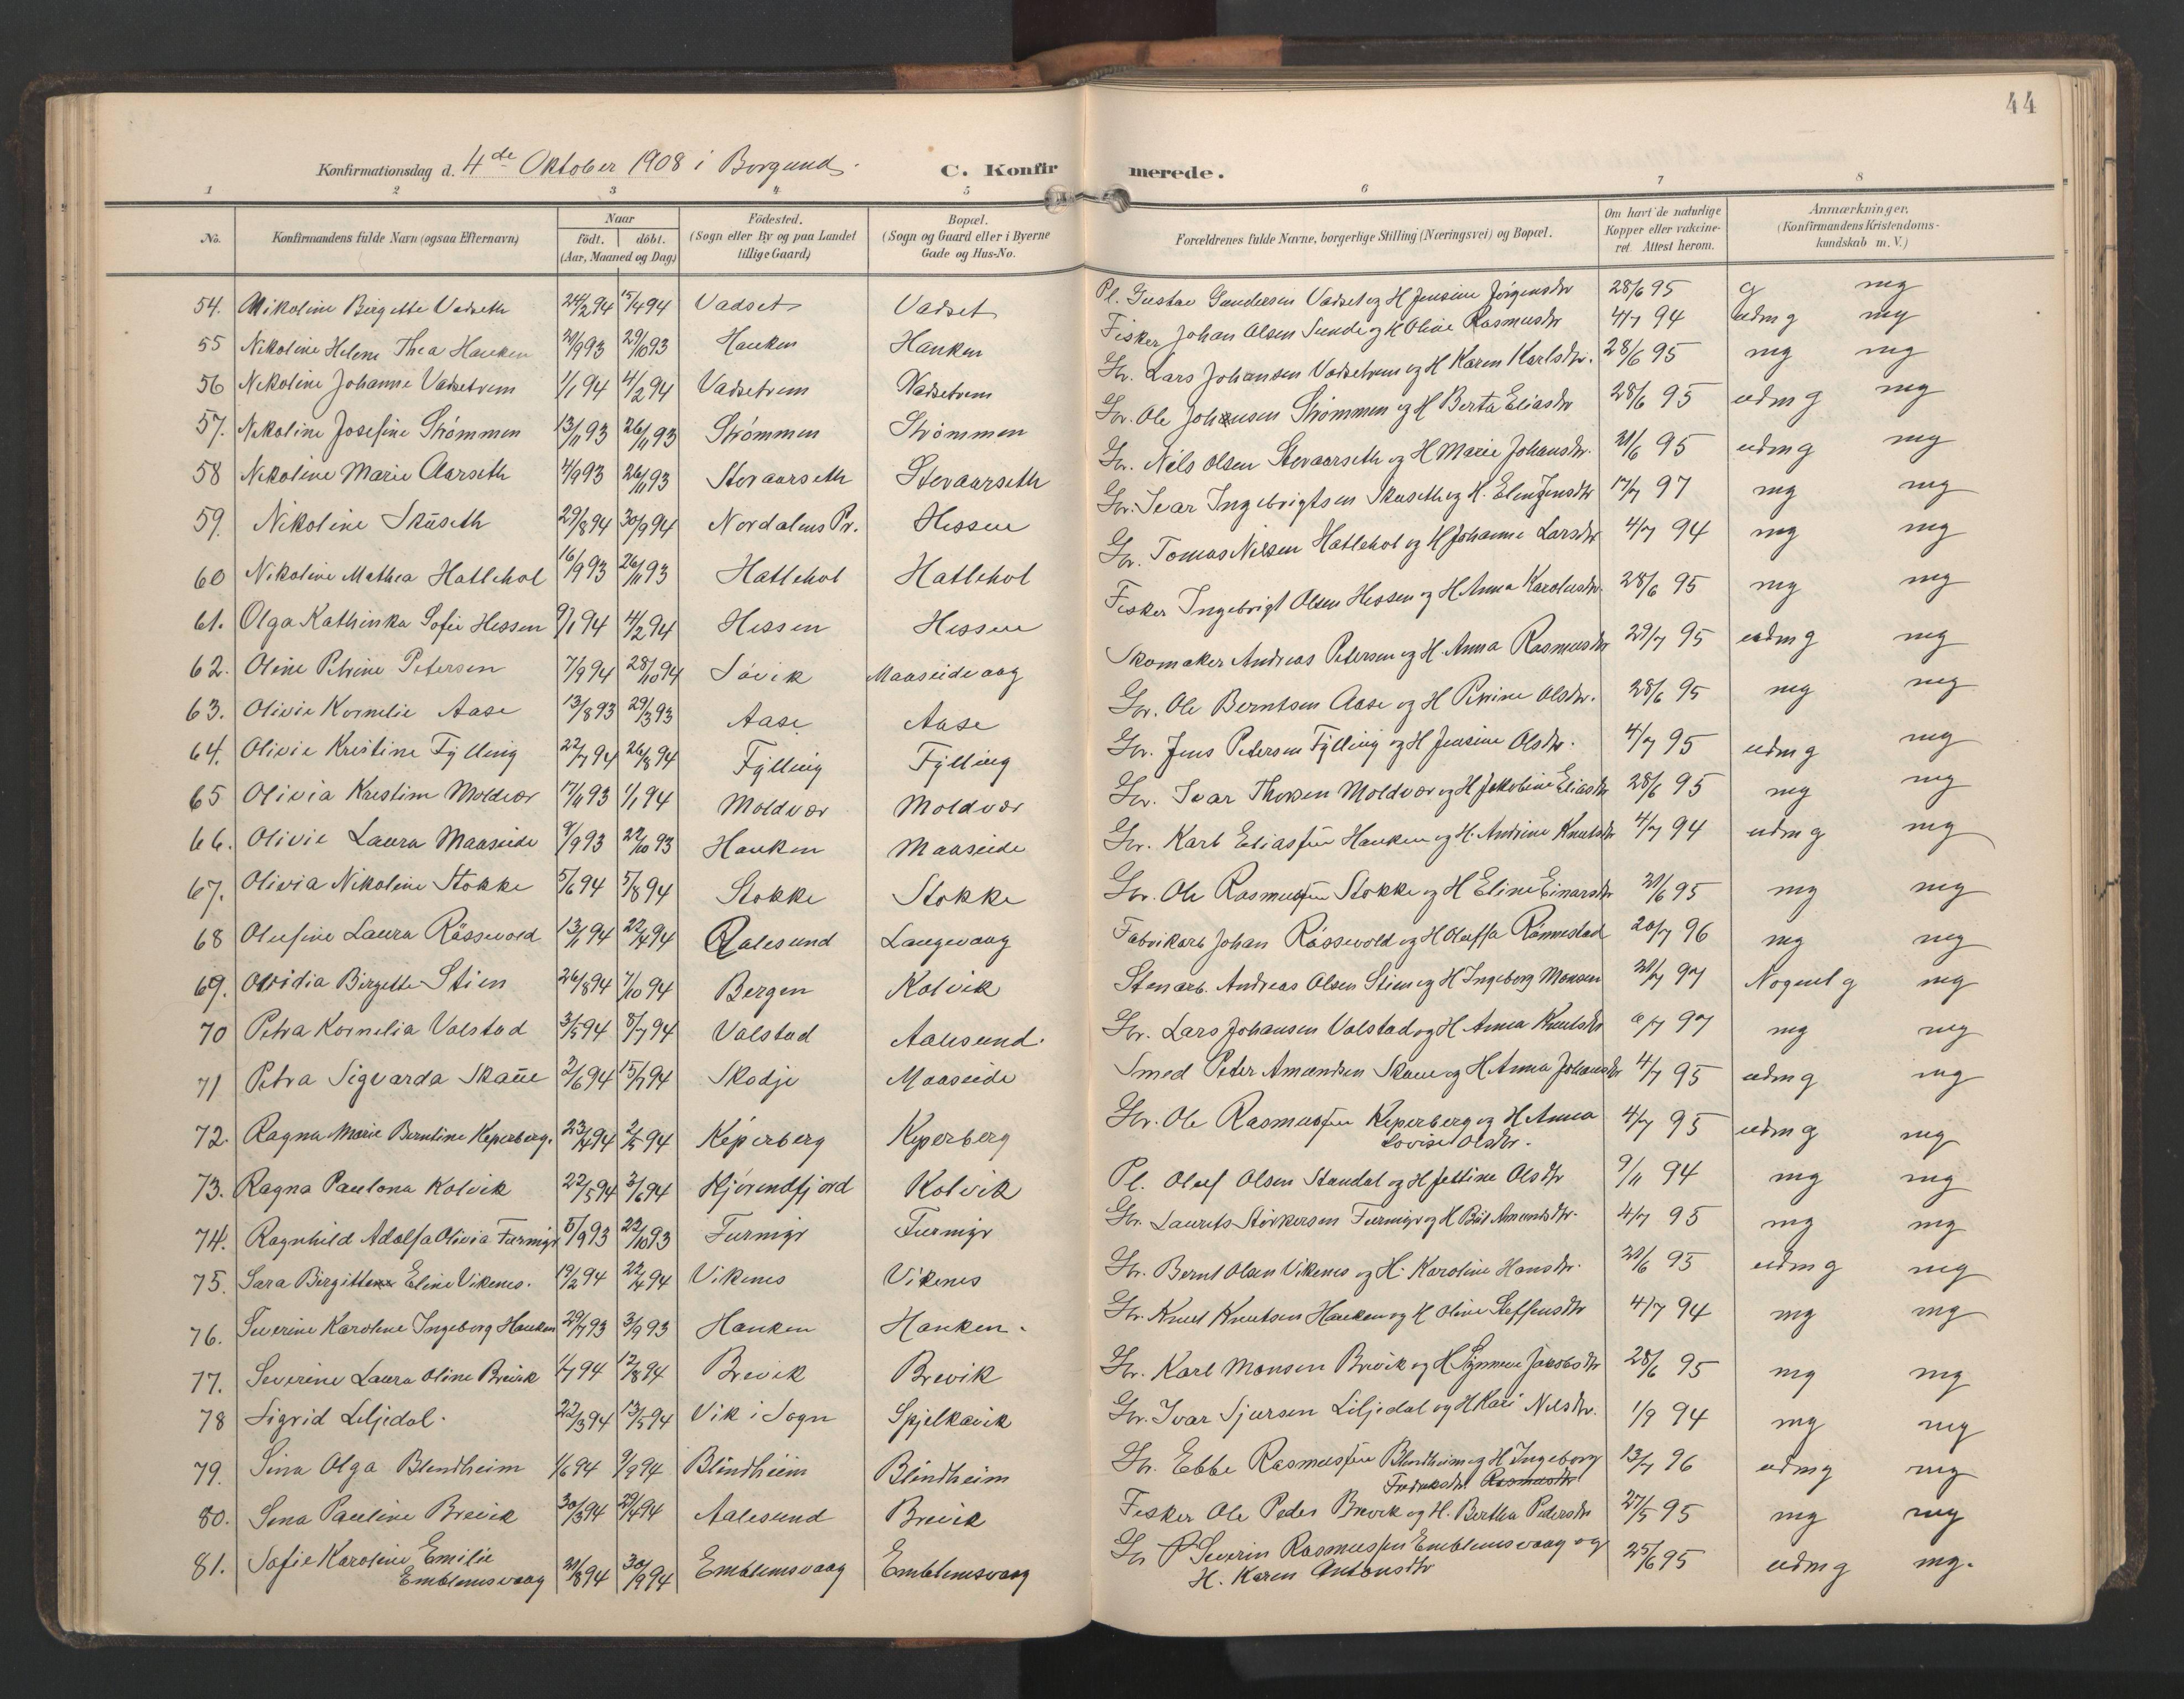 44
Konfirmationsdag d. 4de Oktober 1908 i Borgund. C. Konfirmerede.
1 2 3 4 5 6 7 8
No. Konfirmandens fulde Navn (ogsaa Efternavn) Naar födt. döbt. (Aar, Maaned og Dag) Födested. (Sogn eller By og paa Landet tillige Gaard) Bopæl. (Sogn og Gaard eller i Byerne Gade og Hus-No. Forældrenes fulde Navne, borgerlige Stilling (Næringsvei) og Bopæl. Om havt de naturlige Kopper eller vakcineret. Attest herom. Anmærkninger. (Konfirmandens Kristendomskundskab m. V.)
54. Nikoline Birgitte Vadseth 24/2 94 15/4 94 Vadset Vadset Pl. Gustav Gundersen Vadset og H Jensine Jörgensdtr 28/6 95 g mg
55 Nikoline Helene Thea Hanken 20/9 93 29/10 93 Hanken Hanken Fisker Johan Olsen Sunde og H Oline Rasmusdtr 4/7 94 udm g mg
56 Nikoline Johanne Vadsetvem 1/1 94 4/2 94 Vadsetvem Vadsetvem Gr. Lars Johansen Vadsetvem og H Karen Karlsdtr. 28/6 95 mg mg
57. Nikoline Josefine Strömmen 13/11 93 26/11 93 Strömmen Strömmen Gr. Ole Johansen Strömmen og H Berta Eliasdtr 28/6 95 udm g mg
58 Nikoline Marie Aarseth 4/9 93 26/11 93 Storaarseth Storaarseth Gr. Nils Olsen Storaarseth og H Marie Johansdtr. 21/6 95 udm g mg
59. Nikoline Skuseth 29/8 94 30/9 94 Nordalens Pr. Hessen Gr. Ivar Ingebrigtsen Skuseth og H. Elen Jensdtr 17/7 97 mg mg
60 Nikoline Mathea Hatlehol 16/9 93 26/11 93 Hatlehol Hatlehol Gr. Tomas Nilsen Hatlehol og H Johanne Larsdtr 4/7 94 mg mg
61. Olga Kathinka Sofie Hessen 9/1 94 4/2 94 Hessen Hessen Fisker Ingebrigt Olsen Hessen og H Anna Karolusdtr 28/6 95 mg mg
62. Oline Petrine Petersen 7/9 94 28/10 94 Søvik Maaseidevaag Skomaker Andreas Petersen og H. Anna Rasmusdtr 29/7 95 udm g mg
63. Olivie Kornelie Aase 13/8 93 29/3 93 Aase Aase Gr. Ole Berntsen Aase og H Petrine Olsdtr. 28/6 95 mg mg
64. Olivie Kristine Fylling 22/7 94 26/8 94 Fylling Fylling Gr. Jens Petersen Fylling og H Jensine Olsdtr. 4/7 95 udm g mg
65 Olivia Kristine Moldvær 17/11 93 1/1 94 Moldvær Moldvær Gr. Ivar Thorsen Moldvær og H Jakobine Eliasdtr 28/6 95 mg mg
66. Olivie Laura Maaseide 9/9 93 22/10 93 Hanken Maaseide Gr. Karl Eliassen Hanken og H. Andrine Knutsdtr 4/7 94 udm g mg
67. Olivia Nikoline Stokke 5/6 94 5/8 94 Stokke Stokke Gr. Ole Rasmussen Stokke og H Eline Einarsdtr 21/6 95 mg mg
68 Olufine Laura Rössevold 13/1 94 22/4 94 Aalesund Langevaag Fabrikarb Johan Rössevold og H Oluffa Römmestad 20/7 96 mg mg
69. Ovidia Birgitte Stien 26/8 94 7/10 94 Bergen Kolvik Stenarb. Andreas Olsen Stien og H Ingeborg Monsen 21/7 97 Noget g mg
70 Petra Kornelia Valstad 3/5 94 8/7 94 Valstad Aalesund. Gr. Lars Johansen Valstad og H Anna Knutsdtr 6/7 97 mg mg
71 Petra Sigvarda Skaue 2/6 94 15/7 94 Skodje Maaseide Smed Peter Amundsen Skaue og H Anna Johansdtr 4/7 95 udm g mg
72. Ragna Marie Berntine Keperberg. 23/4 94 2/5 94 Keperberg Keperberg Gr. Ole Rasmussen Keperberg og H Anna 4/7 95 udm g mg
Lovise Olsdtr.
73. Ragna Paulona Kolvik 22/5 94 3/6 94 Hjörendfjord Kolvik Pl. Oluf Olsen Standal og H Jettine Olsdtr 9/11 94 mg mg
74. Ragnhild Adolfa Olivia Furmyr 5/9 93 22/10 93 Furmyr Furmyr Gr. Laurits Störkersen Furmyr og H Brit Amundsdtr. 4/7 95 mg mg
75. Sara Birgitte Eline Vikenes. 19/2 94 22/4 94 Vikenes Vikenes Gr. Bernt Olsen Vikenes og H. Karoline Hansdtr. 21/6 95 udm g mg
76. Severine Karoline Ingeborg Hanken 29/7 93 3/9 93 Hanken Hanken. Gr. Knut Knutsen Hanken og H Oline Steffensdtr 4/7 94 mg mg
77. Severine Laura Oline Brevik 1/7 94 12/8 94 Brevik Brevik Gr. Karl Monsen Brevik og H Synneve Jakobsdtr 28/6 95 mg mg
78 Sigrid Liljedal. 22/3 94 13/5 94 Vik i Sogn Spjelkavik Gr. Ivar Sjursen Liljedal og H Kari Nilsdtr. 1/9 94 mg mg
79. Sina Olga Blindheim 1/6 94 9/9 94 Blindheim Blindheim Gr. Ebbe Rasmussen Blindheim og H Ingeborg 13/7 96 udmg mg
Fredriksdtr Rasmusdtr
80. Sina Pauline Brevik 30/3 94 29/4 94 Aalesund Brevik Fisker Ole Peder Brevik og H. Bertha Pedersdtr 27/5 95 mg mg
81. Sofie Karoline Emilie 21/8 94 30/9 94 Emblemsvaag Emblemsvaag Gr P Severin Rasmussen Emblemsvaag og 25/6 95 udm g mg.
Emblemsvaag H. Karen Antonsdtr